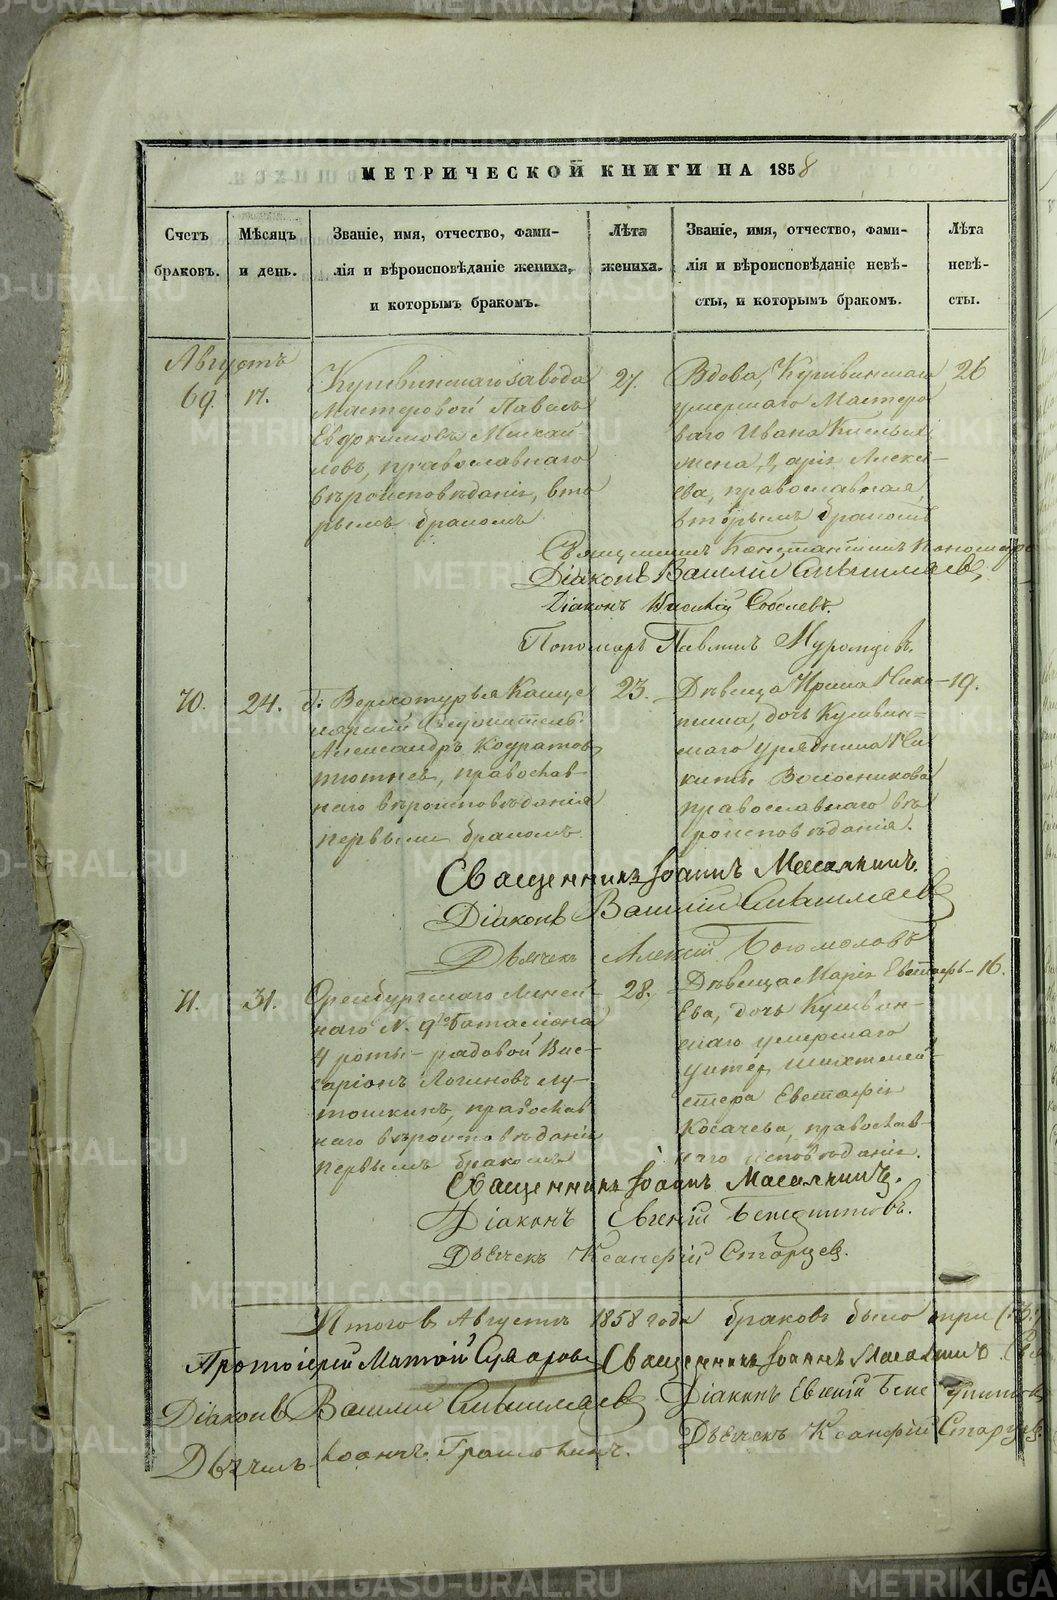 МЕТРИЧЕСКОЙ КНИГИ НА 1858
Счетъ браковъ.
Мѣсяцъ и день.
Званіе, имя, отчество, фами-
лія и вѣроисповѣданіе жениха,
и которымъ бракомъ.
Лѣта жениха.
Званіе, имя, отчество, фами-
лія и вѣроисповѣданіе невѣ-
сты, и которымъ бракомъ.
Лѣта невѣ-
сты.
Августъ
69. 17.
Кушвинскаго завода
Мастеровой Павелъ
Евдокимовъ Михай-
ловъ, православнаго
вѣроисповѣданія, вто
рымъ бракомъ
27.
Вдова, Кушвинскаго
умершаго Мастеро
ваго Ивана
жена, Алексѣ-
ева, православная,
вторымъ бракомъ
26
Священникъ Константинъ
Діаконъ Василій
Діаконъ Василій Соболевъ.
Пономарь Павелъ Муромцовъ.
70. 24.
г. Верхотурья Канце
лярскій Служитель
Александръ
православ-
наго вѣроисповѣданія
первымъ бракомъ
23.
Дѣвица Ирина Ники-
тина, дочь Кушвин-
скаго урядника Ни
киты Волосникова
православнаго вѣ
роисповѣданія.
19.
Священникъ Іоаннъ
Діаконъ Василій
Дьячекъ Алексій Богомоловъ
71. 31.
Оренбургскаго Линей-
наго N. 9го Баталіона
4 роты - рядовой Вис-
саріонъ Логиновъ Лу-
тошкинъ, православ
наго вѣроисповѣданія
первымъ бракомъ
28.
Дѣвица Марія Евстафь-
ева, дочь Кушвин-
скаго умершаго
Шихтмей-
стера Евстафія
Косачева, православ-
наго исповѣданія.
16.
Священникъ Іоаннъ
Діаконъ Евгеній
Дьячекъ Ксанфій Старцев.
Итого в Августѣ 1858 года браковъ было три (3)
Протоіерей
Священникъ Іоаннъ
Діаконъ Василій
Діаконъ Евгеній
Дьячекъ Іоаннъ
Дьячекъ Ксанфій Старцев
METRIKI.GASO-URAL.RU